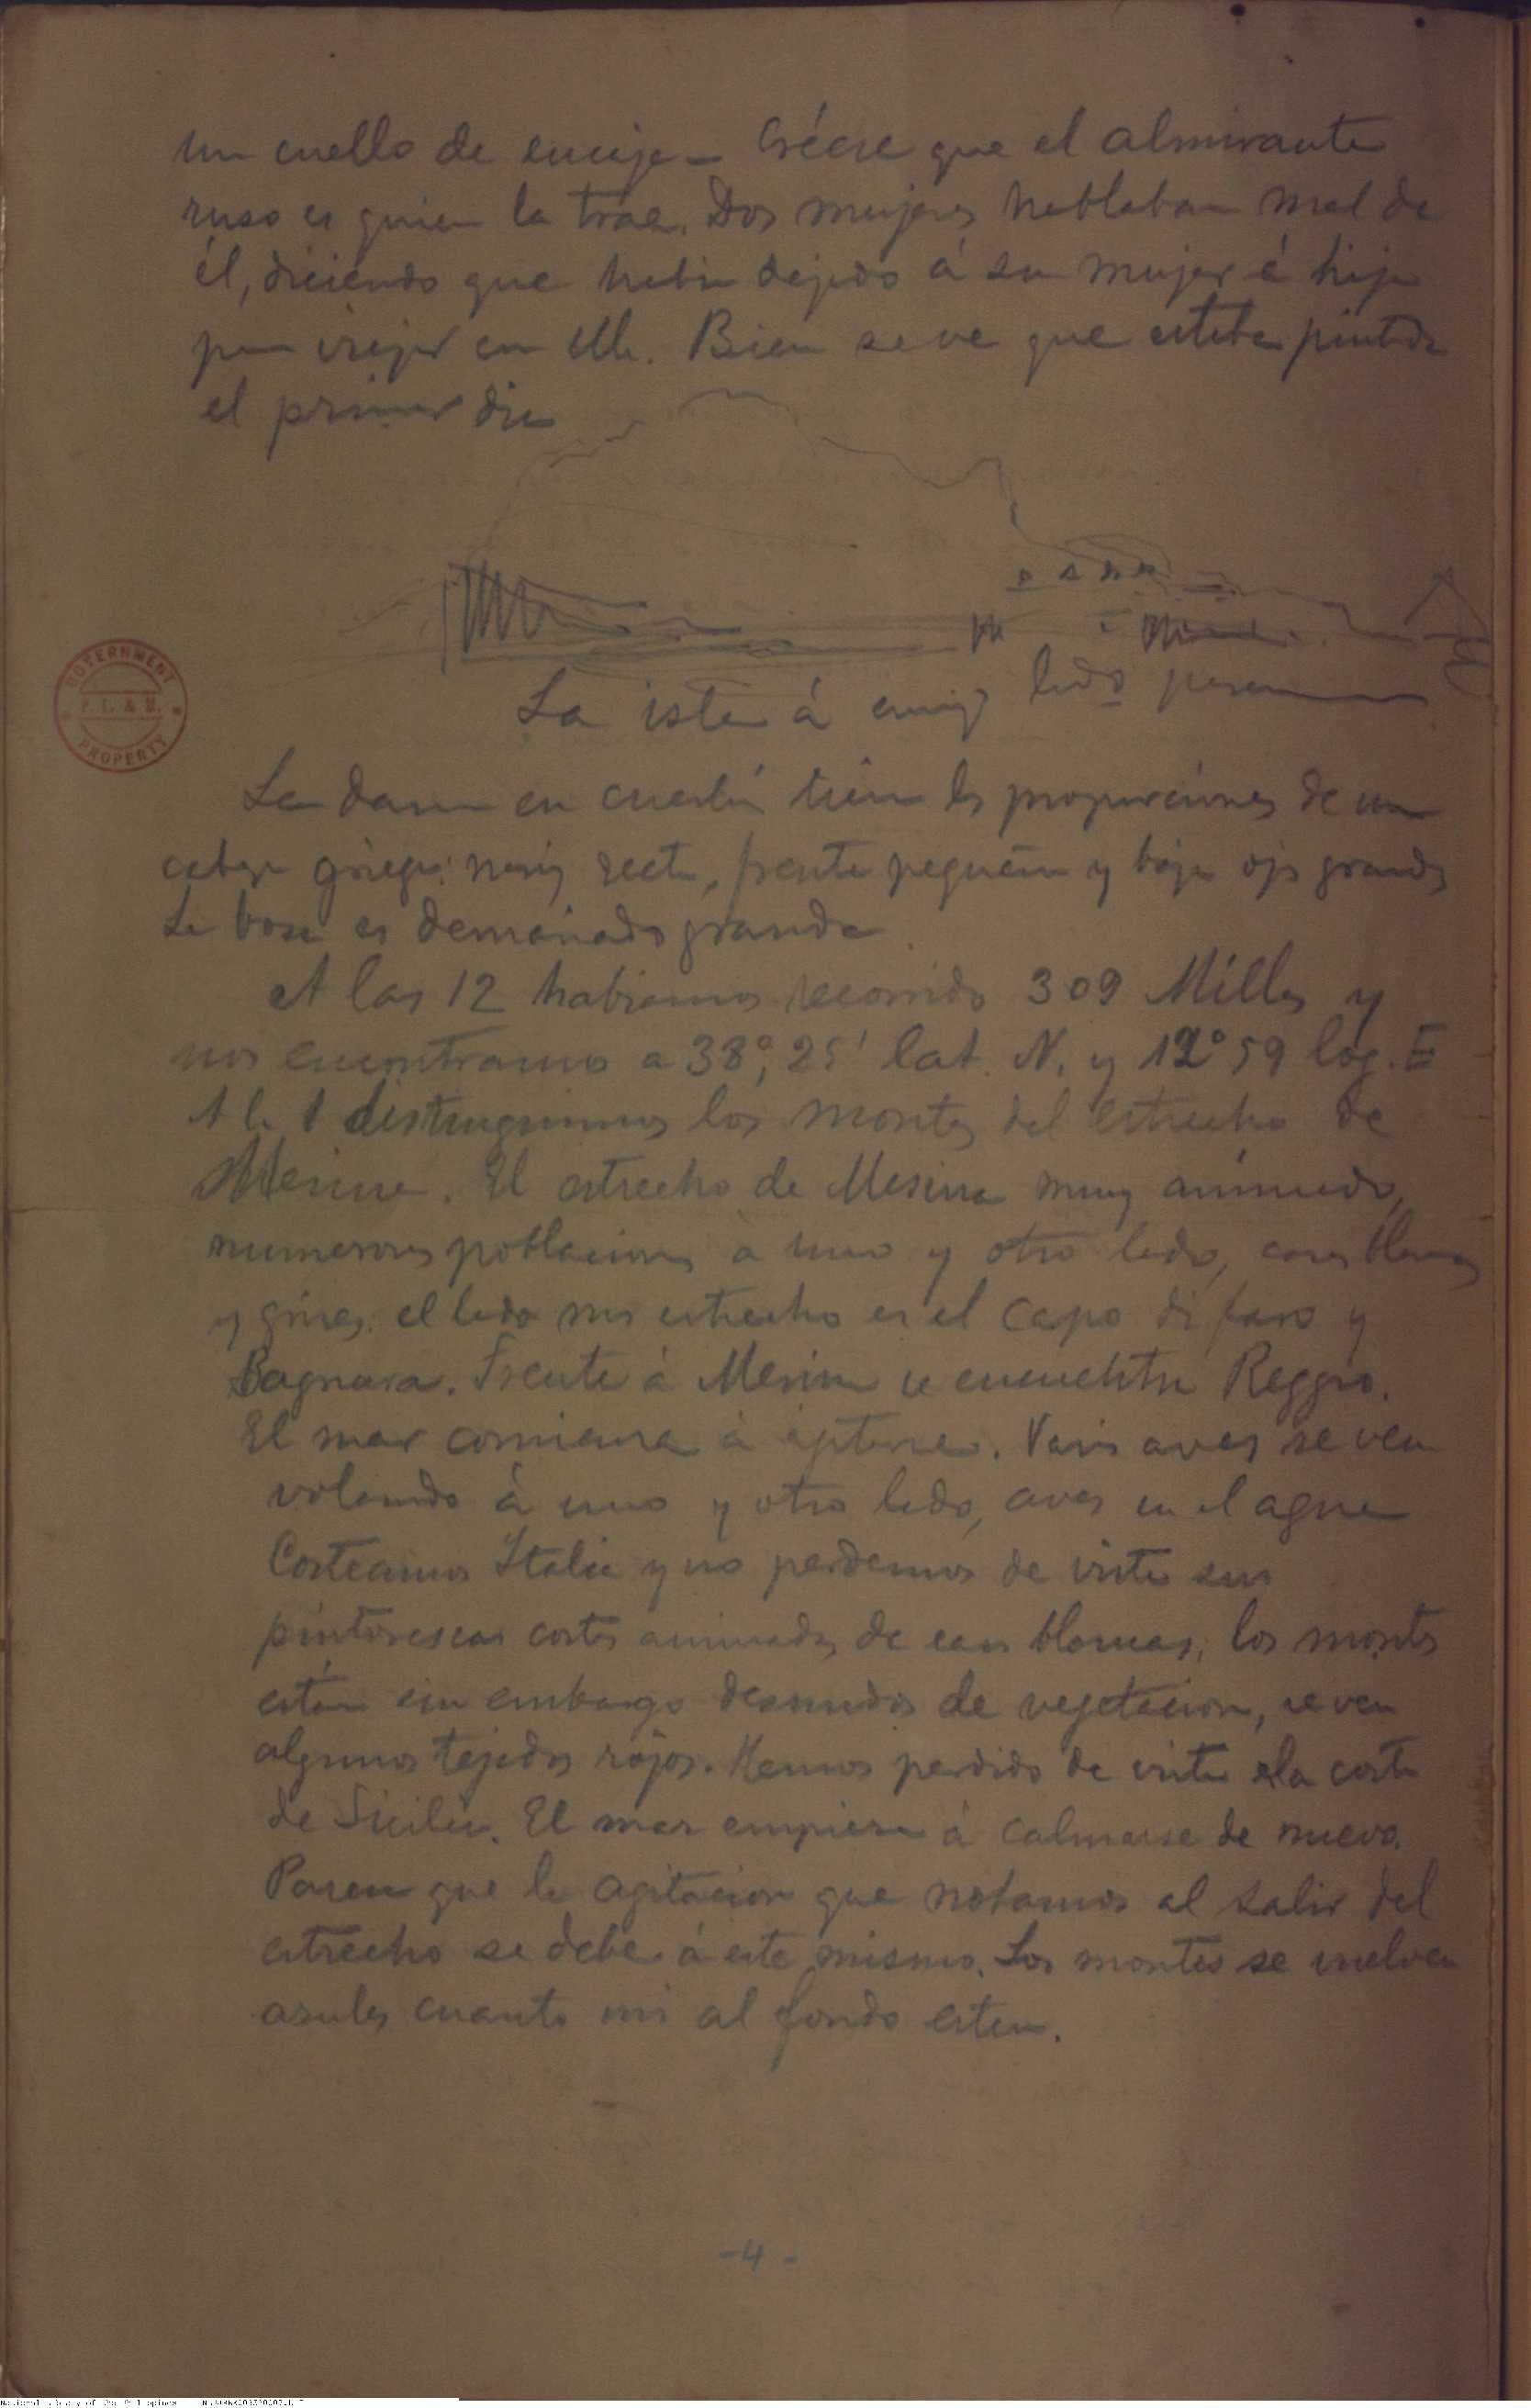 un cuello de encaje - Créese que el almirante
ruso es quien la trae. Dos mujeres hablaban mal de
él, diciendo que habia dejado á su mujer é hija
para viajar en ella. Bien se ve que estaba pintada
el primer dia
La isla á cuyo lado pasamos
GOVERNMENT
P. L. & M.
PROPERTY
La dama en cuestión tiene las proporciones de una
cabeza griega: nariz recta, frente pequeña y baja ojos grandes
La boca es demasiado grande
A las 12 habiamos recorrido 309 Millas y
nos encontramos a 38°, 25' lat. N. y 12° 59 log. E
A la 1 distinguimos los montes del estrecho de
Mesina. El estrecho de Mesina muy animado,
numerosas poblaciones à uno y otro lado, casas blancas
y grises. el lado mas estrecho es el Capo di faro y
Bagnara. Frente à Mesina se encuentra Reggio.
El mar comienza à agitarse. Varias aves se ven
volando à uno y otro lado, aves en el agua
Costeamos Italia y no perdemos de vista sus
pintorescas costas animadas de casas blancas; los montes
están sin embargo desnudos de vegetacion, se ven
algunos tejados rojos. Hemos perdido de vista la costa
de Sicilia. El mar empieza á calmarse de nuevo.
Parece que la agitacion que notamos al salir del
estrecho se debe á este mismo. Los montes se vuelven
azules cuanto mas al fondo esten.
-4-
National Library of the Philippines